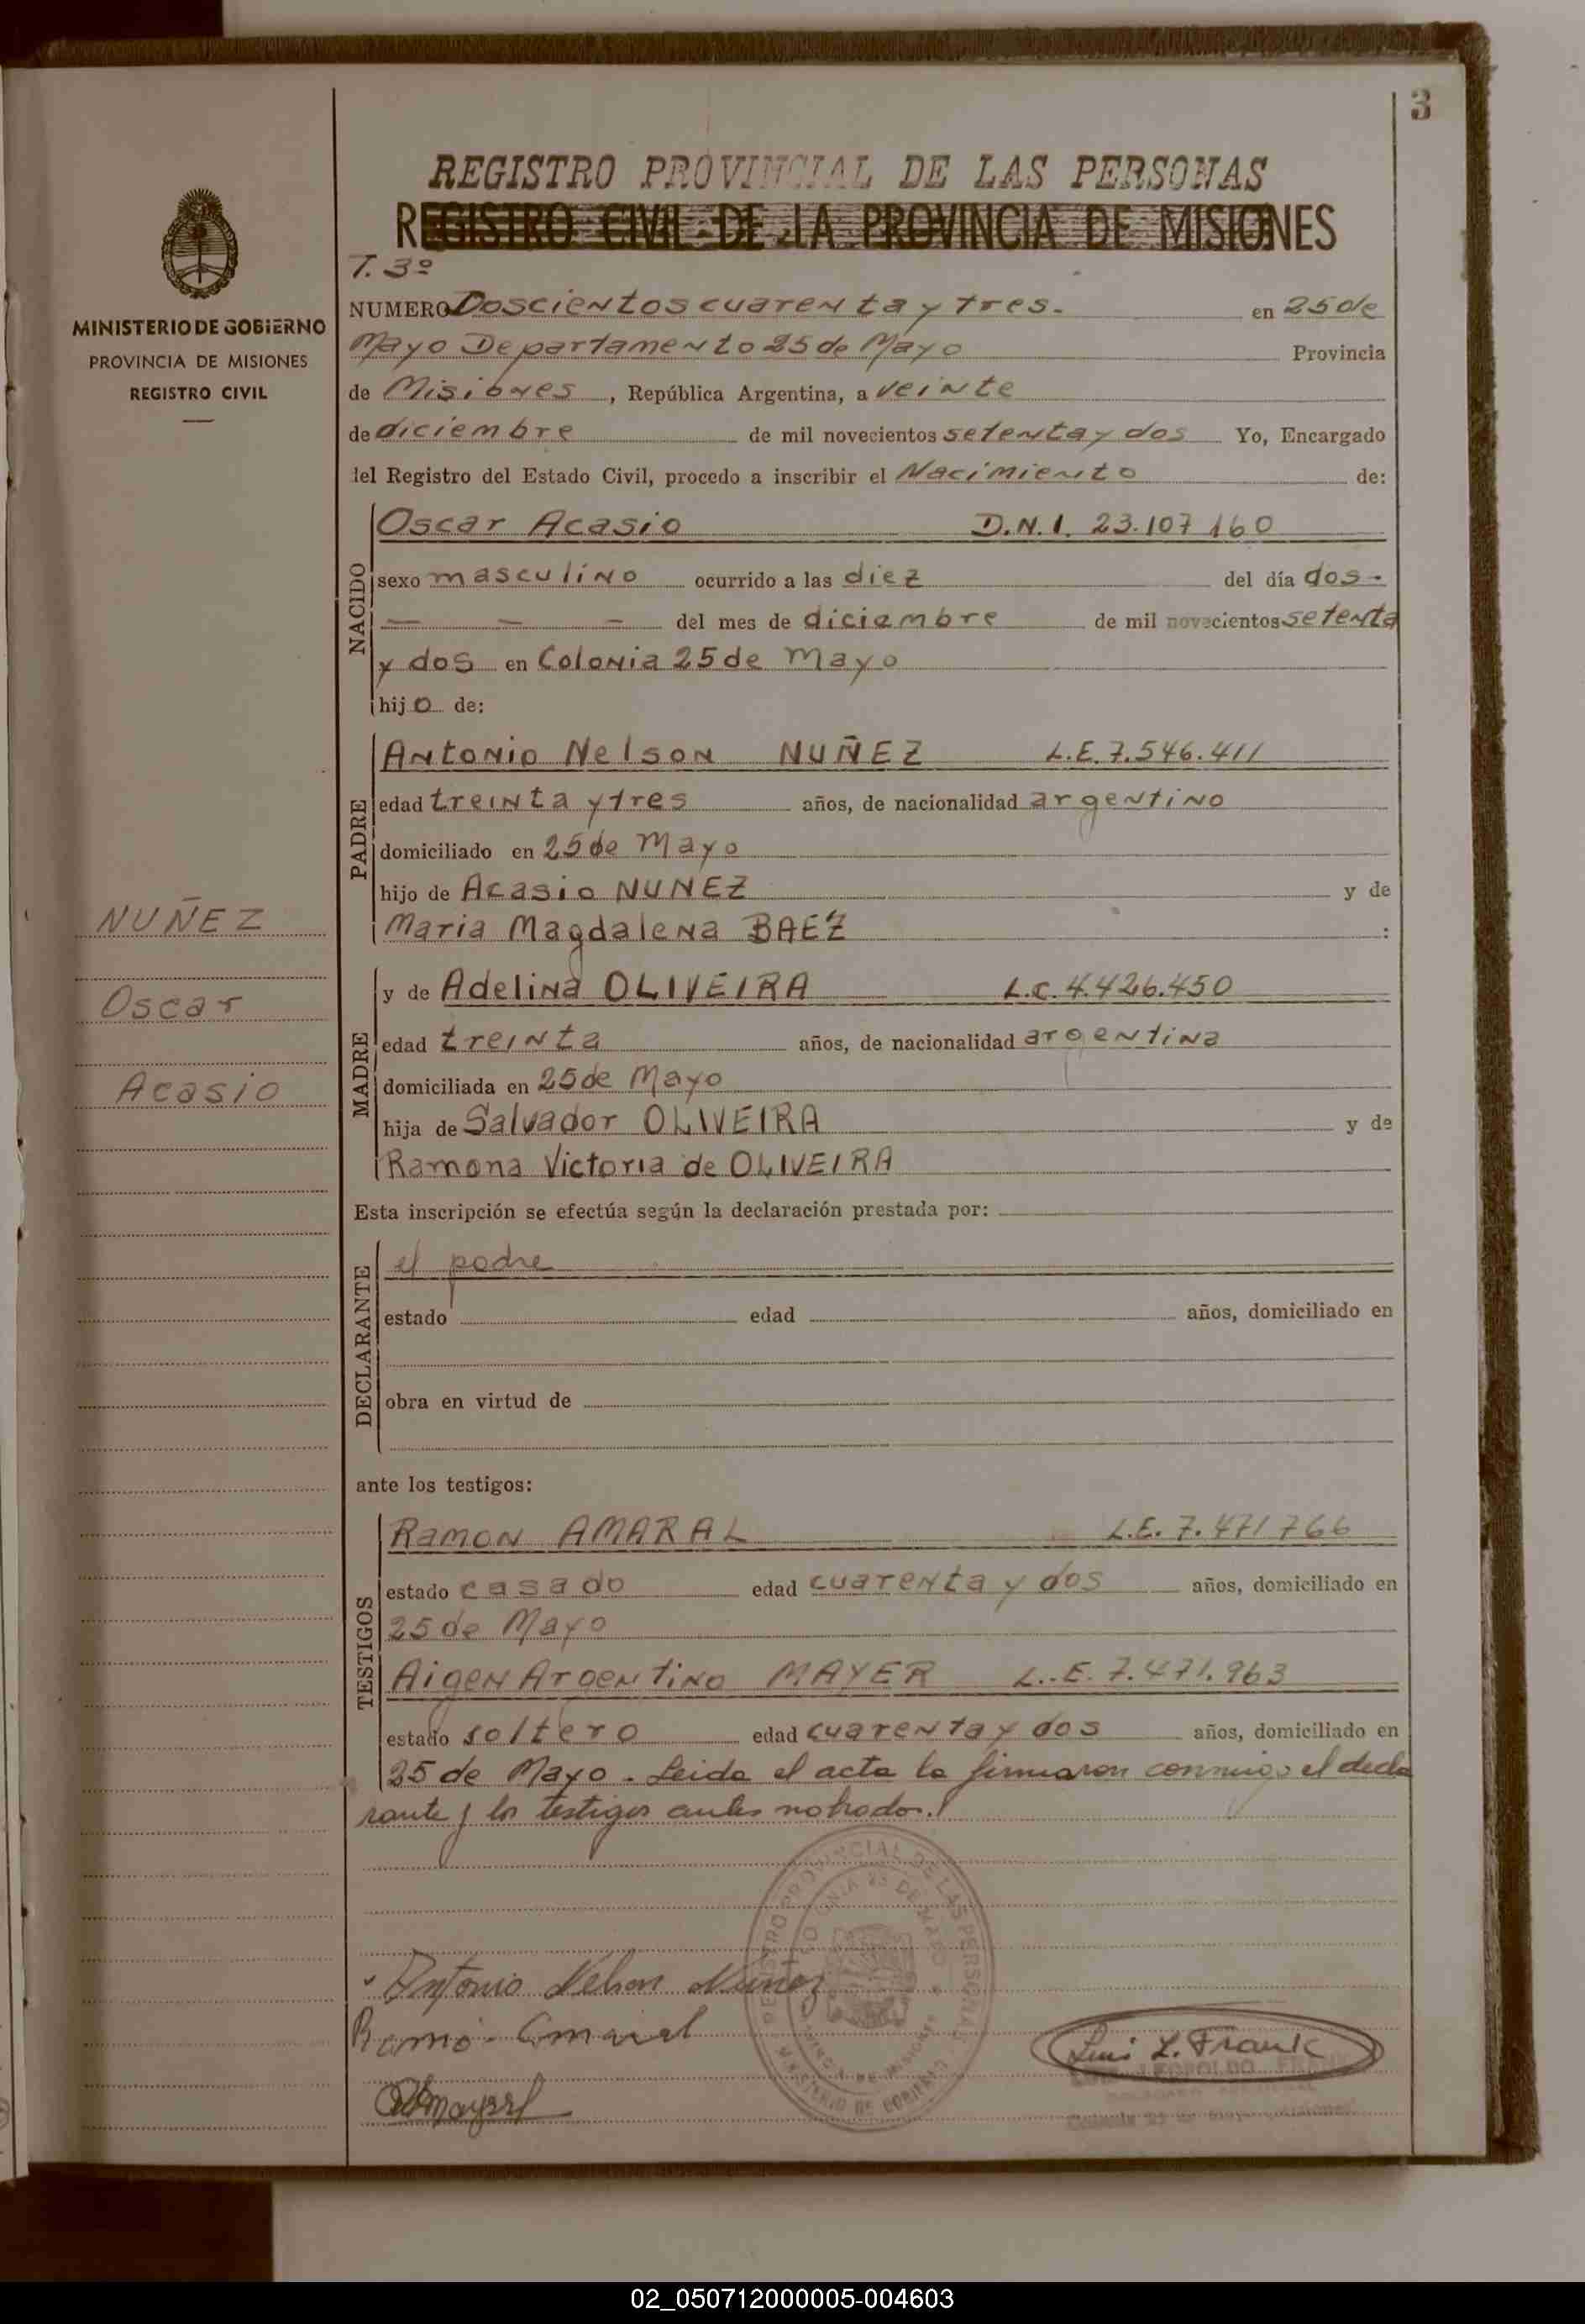 3
REGISTRO PROVINCIAL DE LAS PERSONAS
REGISTRO CIVIL DE LA PROVINCIA DE MISIONES
T. 3º
MINISTERIO DE GOBIERNO
PROVINCIA DE MISIONES
REGISTRO CIVIL
NUMERO Doscientos cuarenta y tres. en 25 de
Mayo Departamento 25 de Mayo Provincia
de Misiones, República Argentina, a veinte
de diciembre de mil novecientos setenta y dos Yo, Encargado
del Registro del Estado Civil, procedo a inscribir el Nacimiento de:
NACIDO
Oscar Acasio D.N.I. 23.107 160
sexo masculino ocurrido a las diez del día dos.-
— — — del mes de diciembre de mil novecientos setenta
y dos en Colonia 25 de Mayo
hijo de:
PADRE
Antonio Nelson NUÑEZ L.E. 7.546.411
edad treinta y tres años, de nacionalidad argentino
domiciliado en 25 de Mayo
hijo de Acasio NUNEZ y de
Maria Magdalena BAEZ :
NUÑEZ
Oscar
Acasio
MADRE
y de Adelina OLIVEIRA L.C. 4.426.450
edad treinta años, de nacionalidad argentina
domiciliada en 25 de Mayo
hija de Salvador OLIVEIRA y de
Ramona Victoria de OLIVEIRA
Esta inscripción se efectúa según la declaración prestada por:
DECLARANTE
el padre
estado edad años, domiciliado en
obra en virtud de
ante los testigos:
TESTIGOS
Ramon AMARAL L.E. 7.471 766
estado casado edad cuarenta y dos años, domiciliado en
25 de Mayo
Aigen Argentino MAYER L.E. 7.471.963
estado soltero edad cuarenta y dos años, domiciliado en
25 de Mayo. Leida el acta la firmaron conmigo el decla
rante y los testigos antes nobrados.
REGISTRO PROVINCIAL DE LAS PERSONAS
COLONIA 25 DE MAYO
PROVINCIA DE MISIONES
MINISTERIO DE GOBIERNO
Antonio Nelson Nuñez
Ramó Amaral
Luis L. Frank
LEOPOLDO FRANK
Colonia 25 de Mayo
02_050712000005-004603